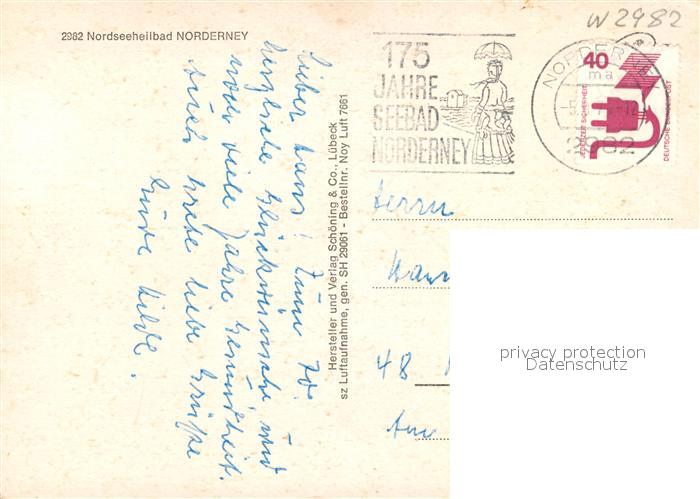 W2982
2982 Nordseeheilbad NORDERNEY
175
JAHRE
SEEBAD
NORDERNEY
NORDERNEY
ma
2982
40
JEDERZEIT SICHERHEIT
DEUTSCHE BUNDESPOST
Lieber Hans! Zum 70.
herzliche Glückwünsche, und
noch viele Jahre Gesundheit.
liebe Grüße
Hilde.
Hersteller und Verlag Schöning & Co., Lübeck
sz Luftaufnahme, gen. SH 29061 - Bestellnr. Noy Luft 7661
Herrn
48
Am
privacy protection
Datenschutz